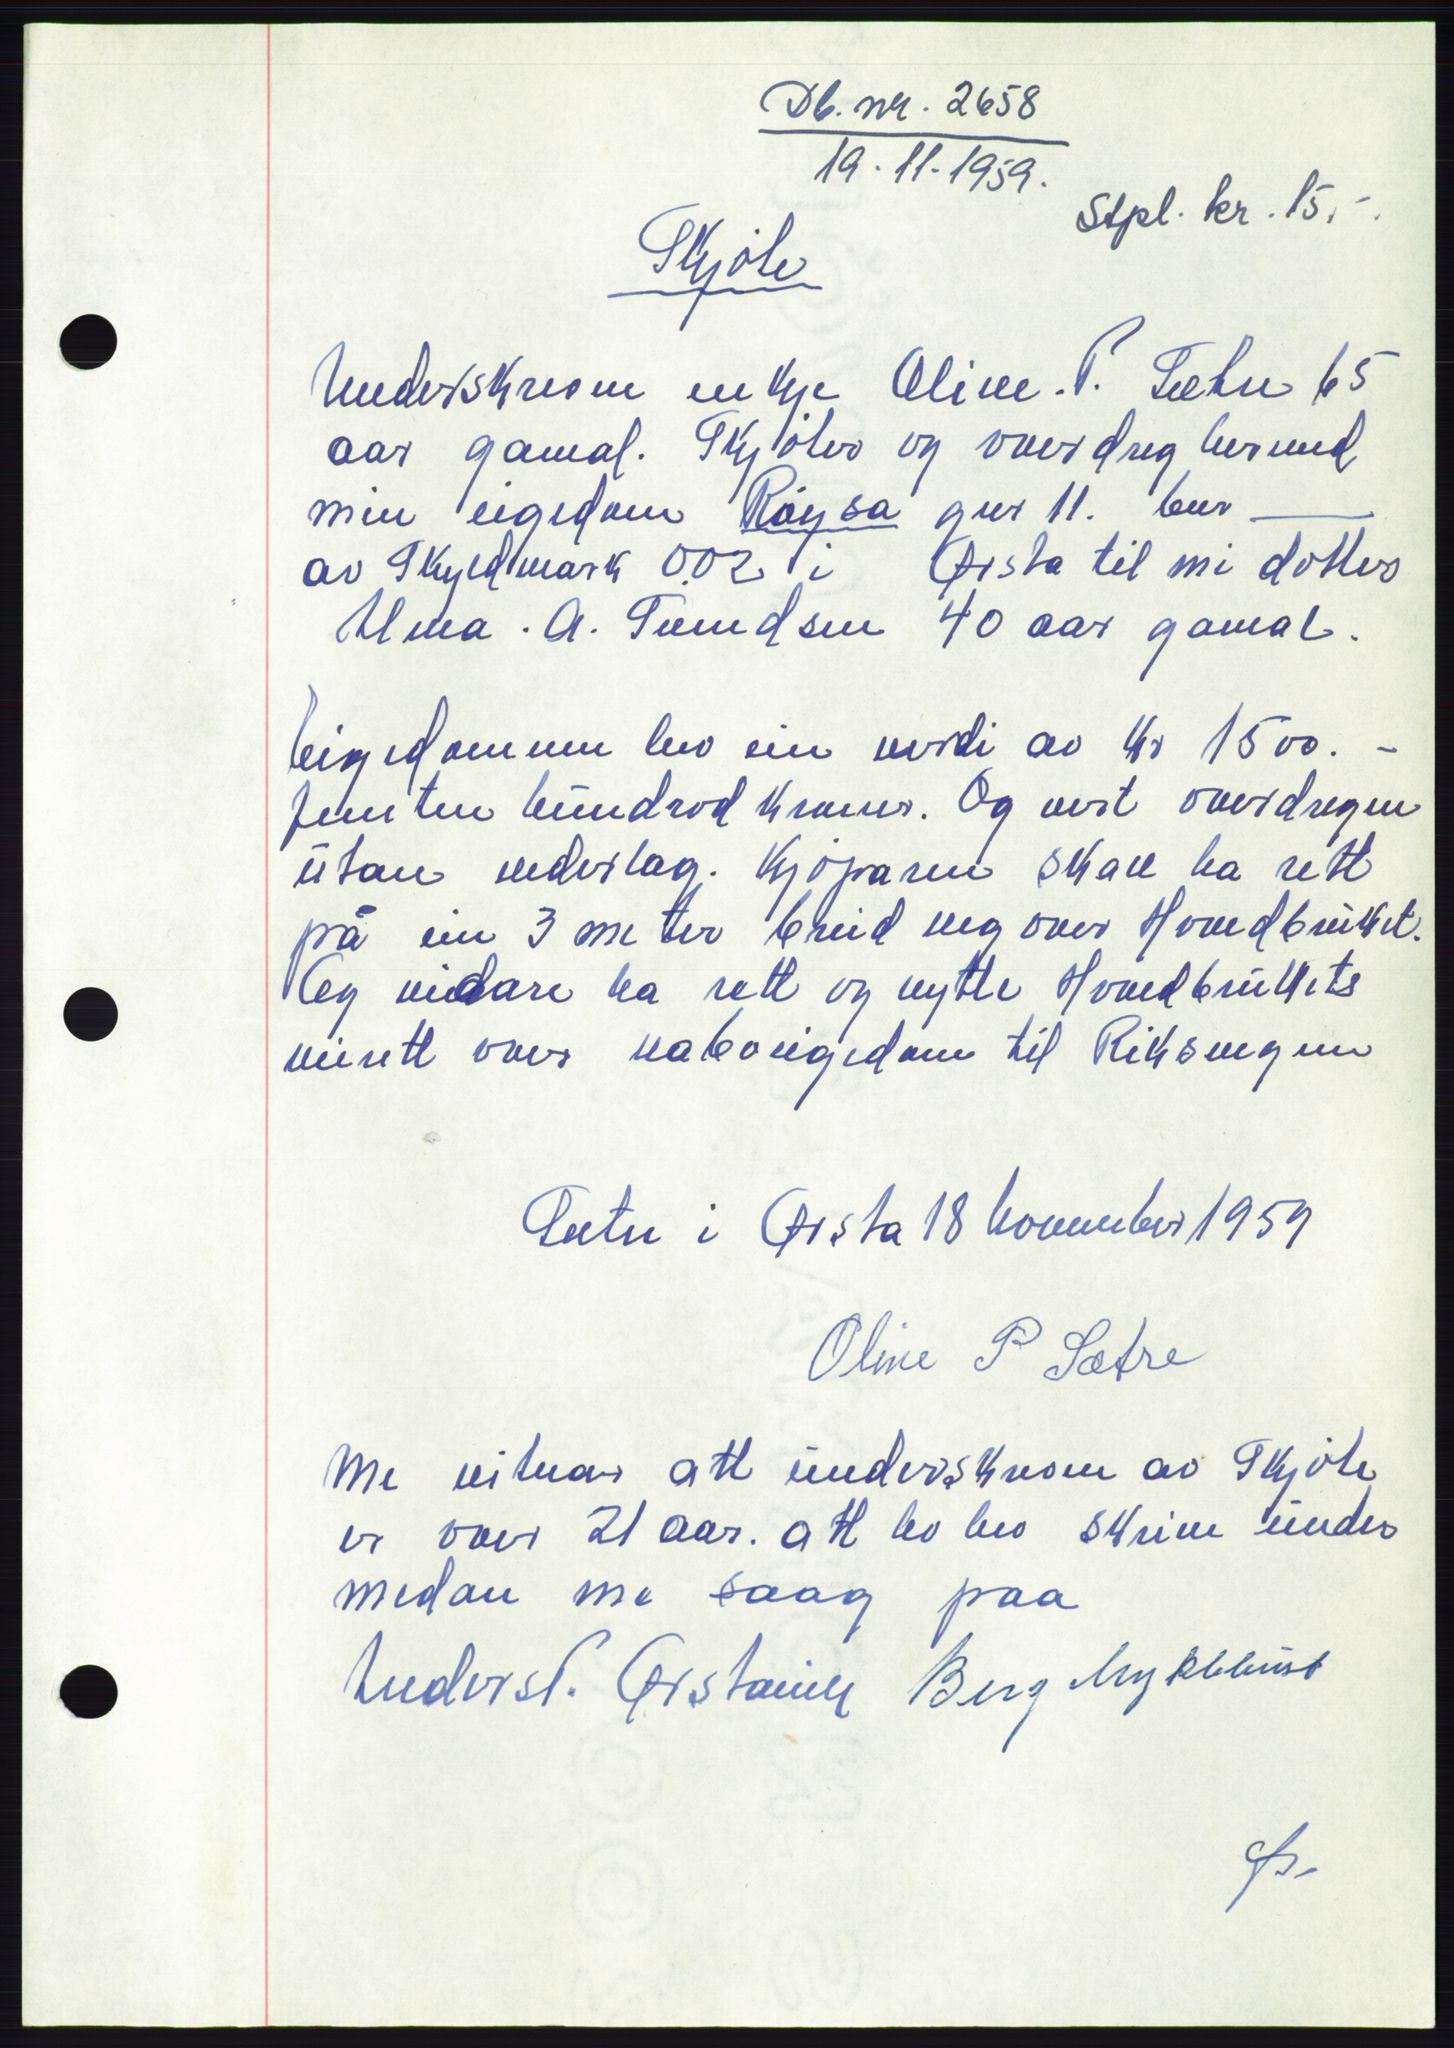 Db. nr. 2658
19.11.1959.
Stpl. kr. 15.-.
Skjøte
Underskreven enkje Oline. P. Sætre 65
aar gamal. Skjøter og overdreg herved
min eigedom Røysa gnr 11. bnr ——
av Skyldmark 0,02 i Ørsta til mi dotter
A. 40 aar gamal.
Eigedommen hev ein verdi av kr 1500.-
femten hundrod kroner. Og vert overdregen
utan vederlag. Kjøparen skal ha rett
på ein 3 meter breid veg over Hovedbruket.
Og vidare ha rett og nytte Hovedbrukets
veirett over naboeigedom til Riksvegen
Sætre i Ørsta 18 November 1959
Oline P Sætre
Me vitnar att underskreven av Skjøte
er over 21 aar. att ho hev skrive under
medan me saag paa
Ørstavik Berg Myklebust